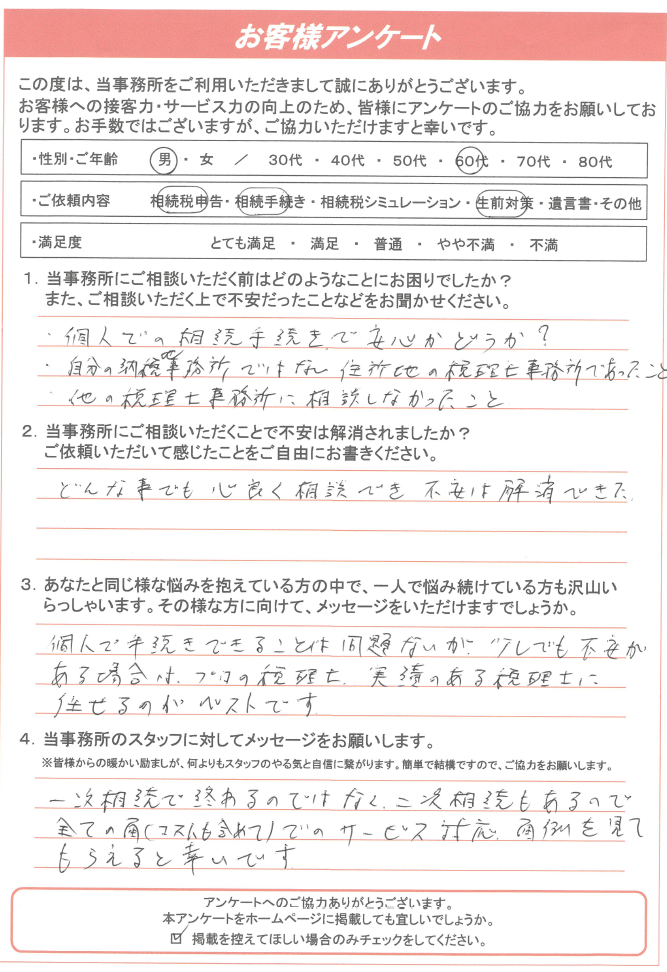 お客様アンケート
この度は、当事務所をご利用いただきまして誠にありがとうございます。
お客様への接客力・サービス力の向上のため、皆様にアンケートのご協力をお願いしてお
ります。お手数ではございますが、ご協力いただけますと幸いです。
・性別・ご年齢 男 ・ 女 ／ 30代 ・ 40代 ・ 50代 ・ 60代 ・ 70代 ・ 80代
・ご依頼内容 相続税申告・相続手続き・相続税シミュレーション・生前対策・遺言書・その他
・満足度 とても満足 ・ 満足 ・ 普通 ・ やや不満 ・ 不満
1．当事務所にご相談いただく前はどのようなことにお困りでしたか？
また、ご相談いただく上で不安だったことなどをお聞かせください。
・個人での相続手続きで安心かどうか？
・自分の納税の事務所ではない住所地の税理士事務所であったこと
・他の税理士事務所に相談しなかったこと
2．当事務所にご相談いただくことで不安は解消されましたか？
ご依頼いただいて感じたことをご自由にお書きください。
どんな事でも心良く相談でき不安は解消できた。
3．あなたと同じ様な悩みを抱えている方の中で、一人で悩み続けている方も沢山い
らっしゃいます。その様な方に向けて、メッセージをいただけますでしょうか。
個人で手続きできることは問題ないが、少しでも不安が
ある場合は、プロの税理士、実績のある税理士に
任せるのがベストです
4．当事務所のスタッフに対してメッセージをお願いします。
※皆様からの暖かい励ましが、何よりもスタッフのやる気と自信に繋がります。簡単で結構ですので、ご協力をお願いします。
一次相続で終わるのではなく、二次相続もあるので
全ての面(コストも含めて)でのサービス対応、面倒を見て
もらえると幸いです
アンケートへのご協力ありがとうございます。
本アンケートをホームページに掲載しても宜しいでしょうか。
☑ 掲載を控えてほしい場合のみチェックをしてください。